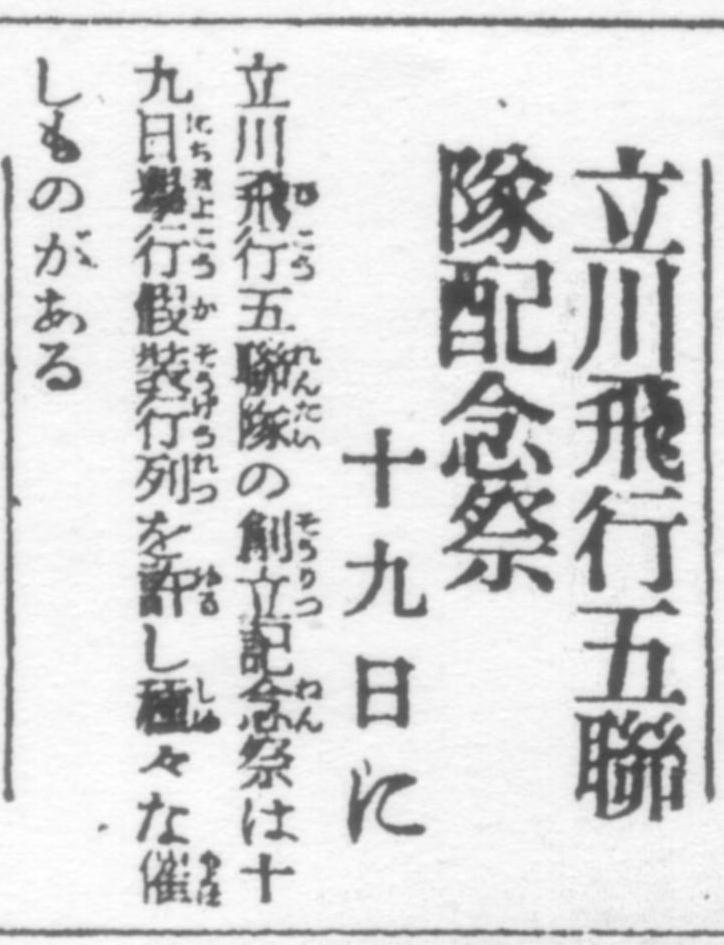 立川飛行五聯
隊配念祭
十九日に
立川飛行五聯隊の創立記念祭は十
九日擧行假裝行列を許し種々な催
しものがある